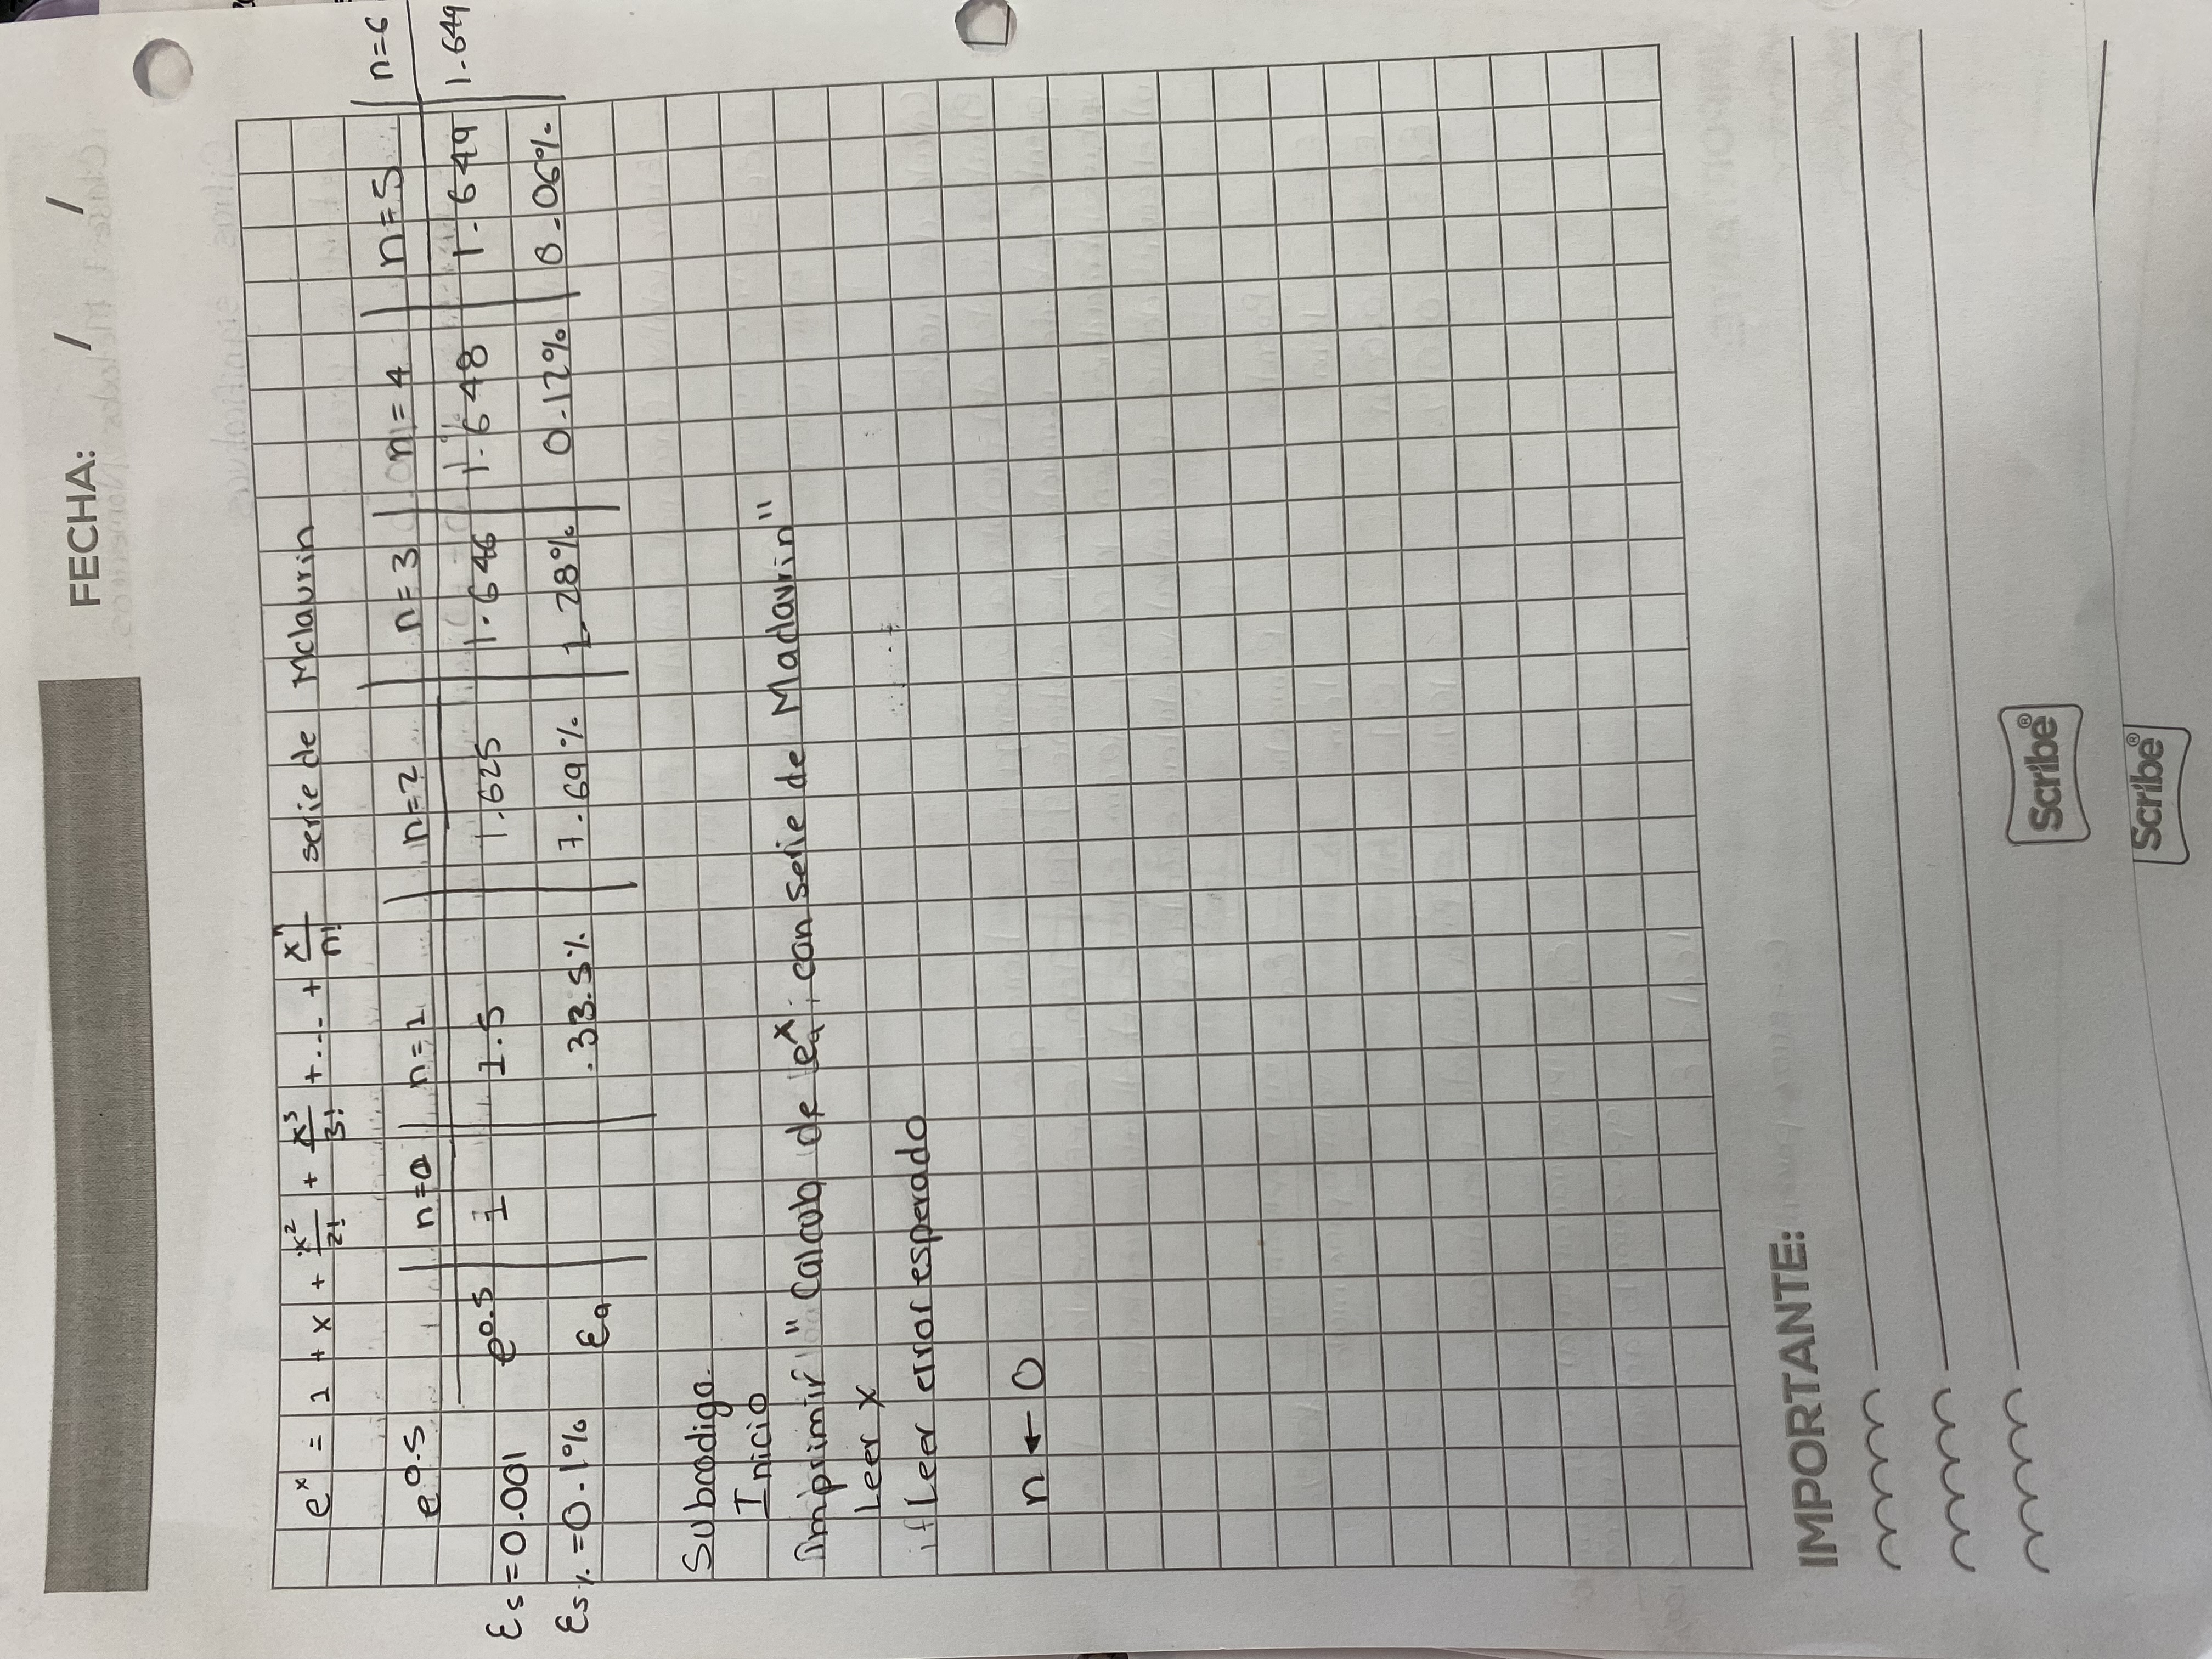 FECHA: / /
e^x = 1 + x + x^2/2! + x^3/3! + .... + x^n/n! serie de Mclaurin
e^0.5 n=0 n=1 n=2 n=3 n=4 n=5 n=6
Es=0.001 e^0.5 1 1.5 1.625 1.646 1.648 1.649 1.649
Es%=0.1% Ea .33.5% 7.69% 1.28% 0.12% 0.06%
Subcodigo.
Inicio
Imprimir "Calculo de e^x, con serie de Maclaurin"
Leer x
Leer error esperado
n ← 0
IMPORTANTE:
Scribe®
Scribe®